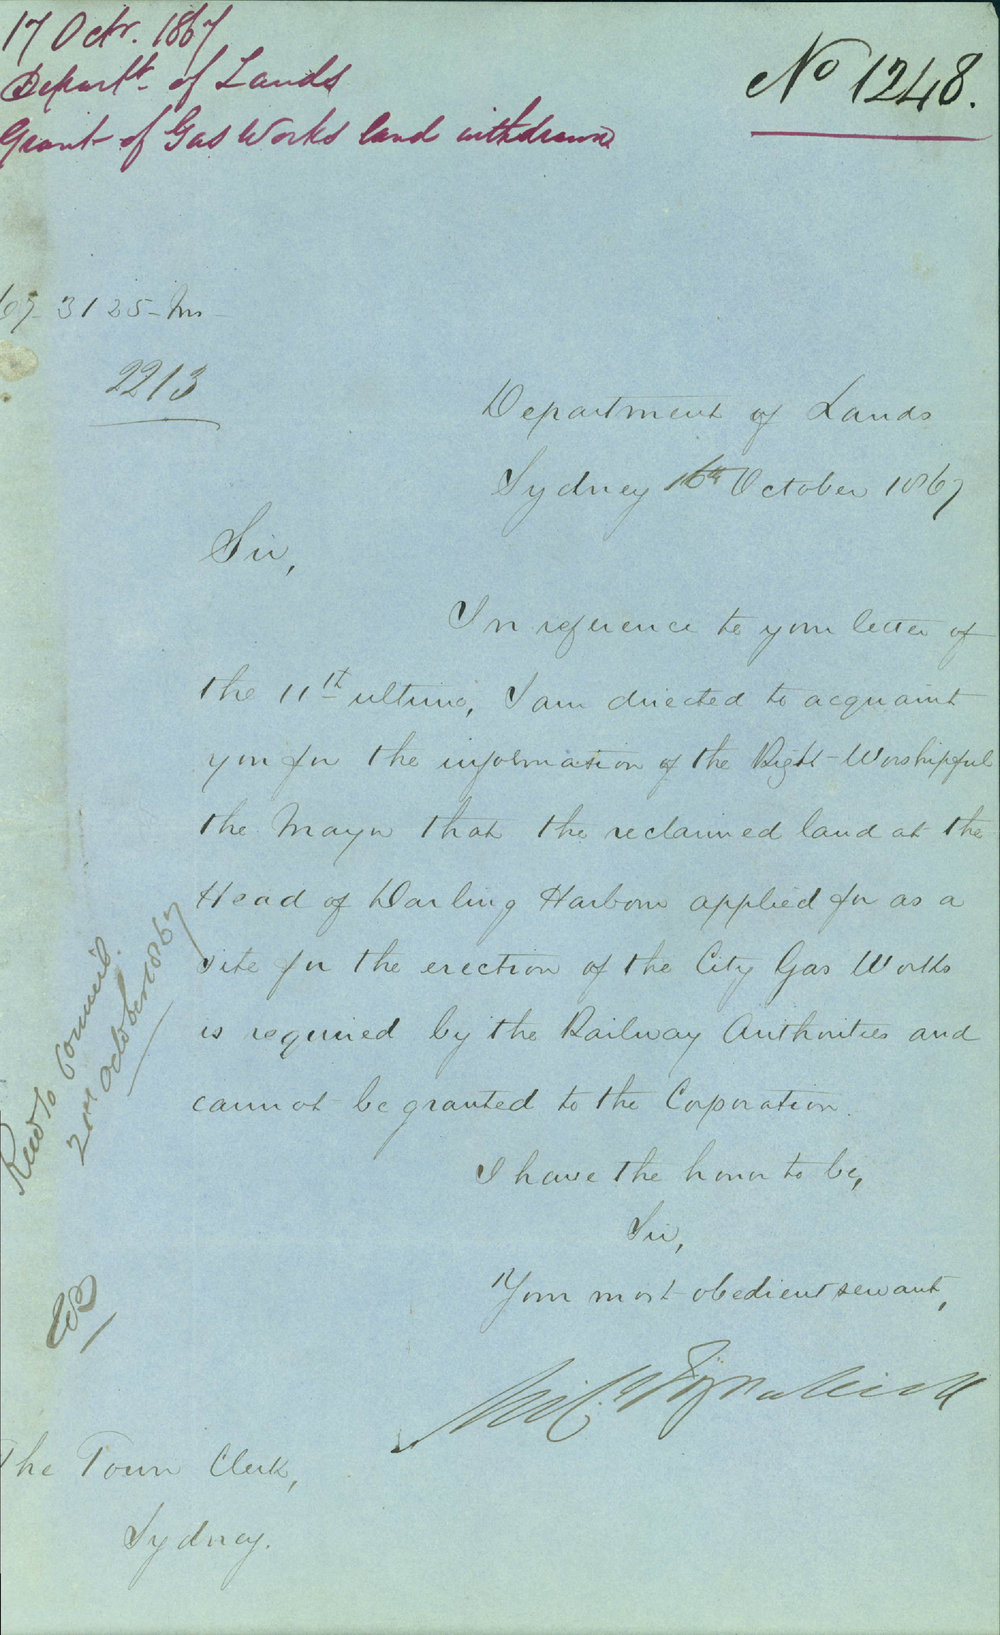 17 Octr. 1867
Departt. of Lands
Grant of Gas Works land withdrawn
No 1248.
67-3125-Ms
2213
Department of Lands
Sydney 16th October 1867
Sir,
In reference to your letter of
the 11th ultimo, I am directed to acquaint
you for the information of the Right Worshipful
the Mayor that the reclaimed land at the
Head of Darling Harbour applied for as a
site for the erection of the City Gas Works
is required by the Railway Authorities and
cannot be granted to the Corporation.
I have the honor to be,
Sir,
Your most obedient servant,
Mich. Fitzpatrick
The Town Clerk,
Sydney.
Read to Council.
October 1867